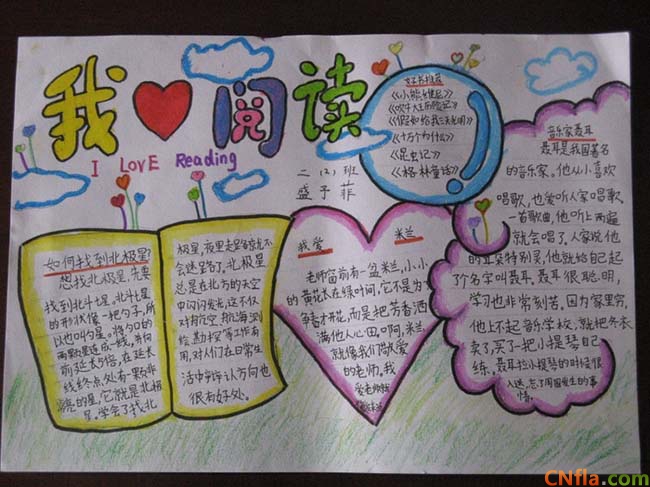 我 阅读
I LOVE Reading
二(2)班
盛子菲
好书推荐
《小熊维尼》
《吹牛大王历险记》
《假如给我三天光明》
《十万个为什么》
《昆虫记》
《格林童话》
如何找到北极星?
想找北极星,先要
找到北斗七星,北斗七星
的形状像一把勺子,所
以也叫勺星。将勺口的
两颗星连成一线,并向
前延长5倍,在延长
线终点处有一颗非
常亮的星,它就是北极
星。学会了找北
极星,夜里走路你就不
会迷路了。北极星
总是在北方的天空
中闪闪发光,这不仅
对航空、航海、测
绘、勘探等工作有
用,对人们在日常生
活中辨认方向也
很有好处。
我爱 米兰
老师窗前有一盆米兰,小小
的黄花在绿叶间,它不是为
争春才开花,而是把芳香洒
满他人心田。啊,米兰
就像我们敬爱
的老师,我
爱老师就
像爱米兰
音乐家聂耳
聂耳是我国著名
的音乐家。他从小喜欢
唱歌,也爱听人家唱歌。
一首歌曲,他听上两遍
就会唱了。人家说他
的耳朵特别灵,他就给自己起
了个名字叫聂耳。聂耳很聪明,
学习也非常刻苦。因为家里穷,
他上不起音乐学校,就把冬衣
卖了,买了一把小提琴自己
练。聂耳拉小提琴的时候很
入迷,忘了周围发生的事
情。
CNfla.com